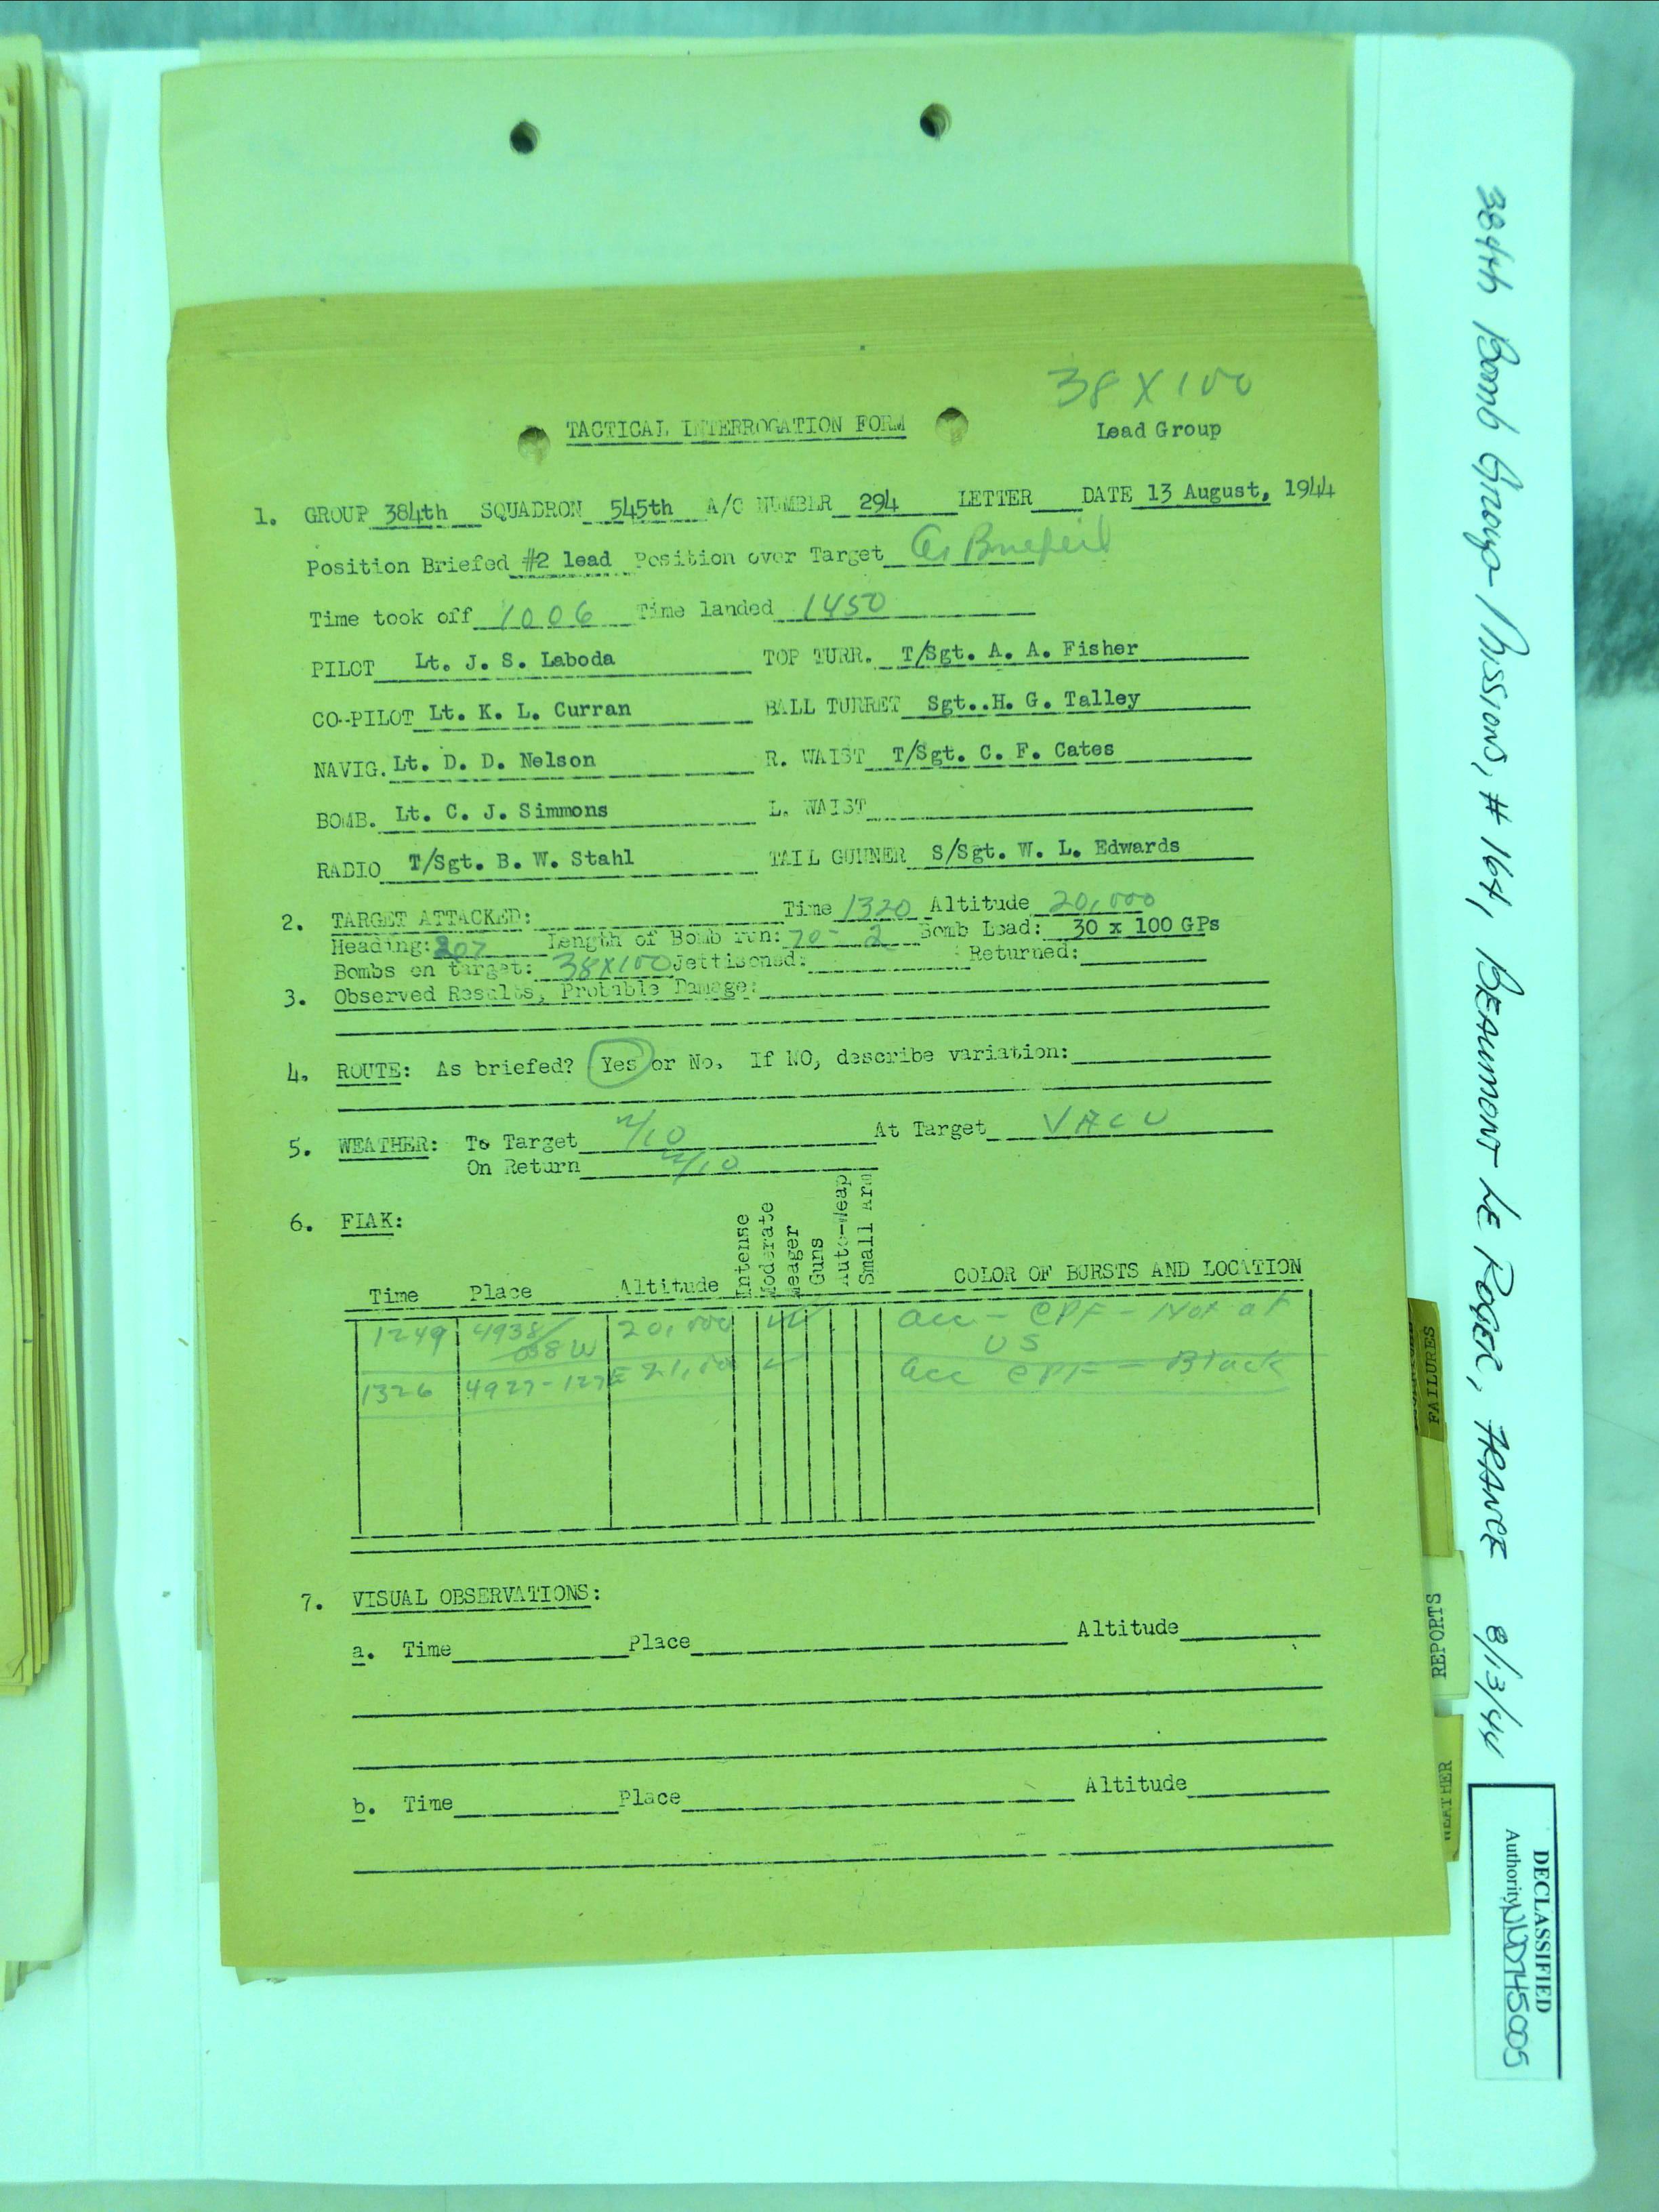 38 X 100
TACTICAL INTERROGATION FORM
Lead Group
1. GROUP 384th SQUADRON 545th A/C NUMBER 294 LETTER DATE 13 August, 1944
Position Briefed #2 lead Position over Target As Briefed
Time took off 1006 Time landed 1450
PILOT Lt. J. S. Laboda TOP TURR. T/Sgt. A. A. Fisher
CO-PILOT Lt. K. L. Curran BALL TURRET Sgt..H. G. Talley
NAVIG. Lt. D. D. Nelson R. WAIST T/Sgt. C. F. Cates
BOMB. Lt. C. J. Simmons L. WAIST
RADIO T/Sgt. B. W. Stahl TAIL GUNNER S/Sgt. W. L. Edwards
2. TARGET ATTACKED: Time 1320 Altitude 20,000
Heading: 207 Length of Bomb run: Bomb Load: 30 x 100 GPs
Bombs on target: 38X100 Jettisoned: Returned:
3. Observed Results, Probable Damage:
4. ROUTE: As briefed? Yes or No. If NO, describe variation:
5. WEATHER: To Target 2/10 At Target VACU
On Return 2/10
6. FLAK:
Time Place Altitude Intense Moderate Meager Guns Auto-Weap Small Arm COLOR OF BURSTS AND LOCATION
1249 4938/ 20,000 acc - CPF - Not at
038W US
1326 4927-127E 21,000 acc CPF - Black
7. VISUAL OBSERVATIONS:
a. Time Place Altitude
b. Time Place Altitude
FAILURES
REPORTS
WEATHER
384th Bomb Group-Missions, #164, BEAUMONT LE ROGER, FRANCE 8/13/44
DECLASSIFIED
Authority NND745005